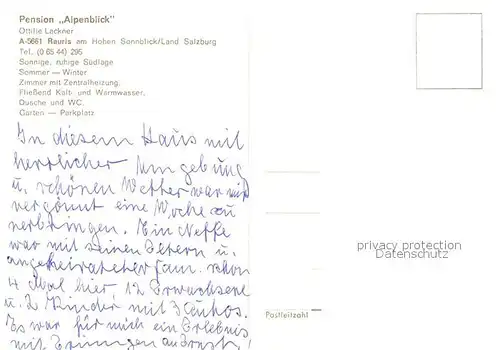 Pension „Alpenblick"
Ottilie Lackner
A-5661 Rauris am Hohen Sonnblick/Land Salzburg
Tel. (0 65 44) 295
Sonnige, ruhige Südlage
Sommer — Winter
Zimmer mit Zentralheizung.
Fließend Kalt- und Warmwasser.
Dusche und WC.
Garten — Parkplatz
In diesem Haus mit
herrlicher Umgebung
u. schönen Wetter war mir
vergönnt eine Woche zu
verbringen. Ein Neffe
war mit seinen Eltern u.
angeheirateter Fam. schon
4 Mal hier 12 Erwachsene
u. 2 Kinder mit 3 Autos.
Es war für mich ein Erlebnis
mit
privacy protection
Datenschutz
Postleitzahl